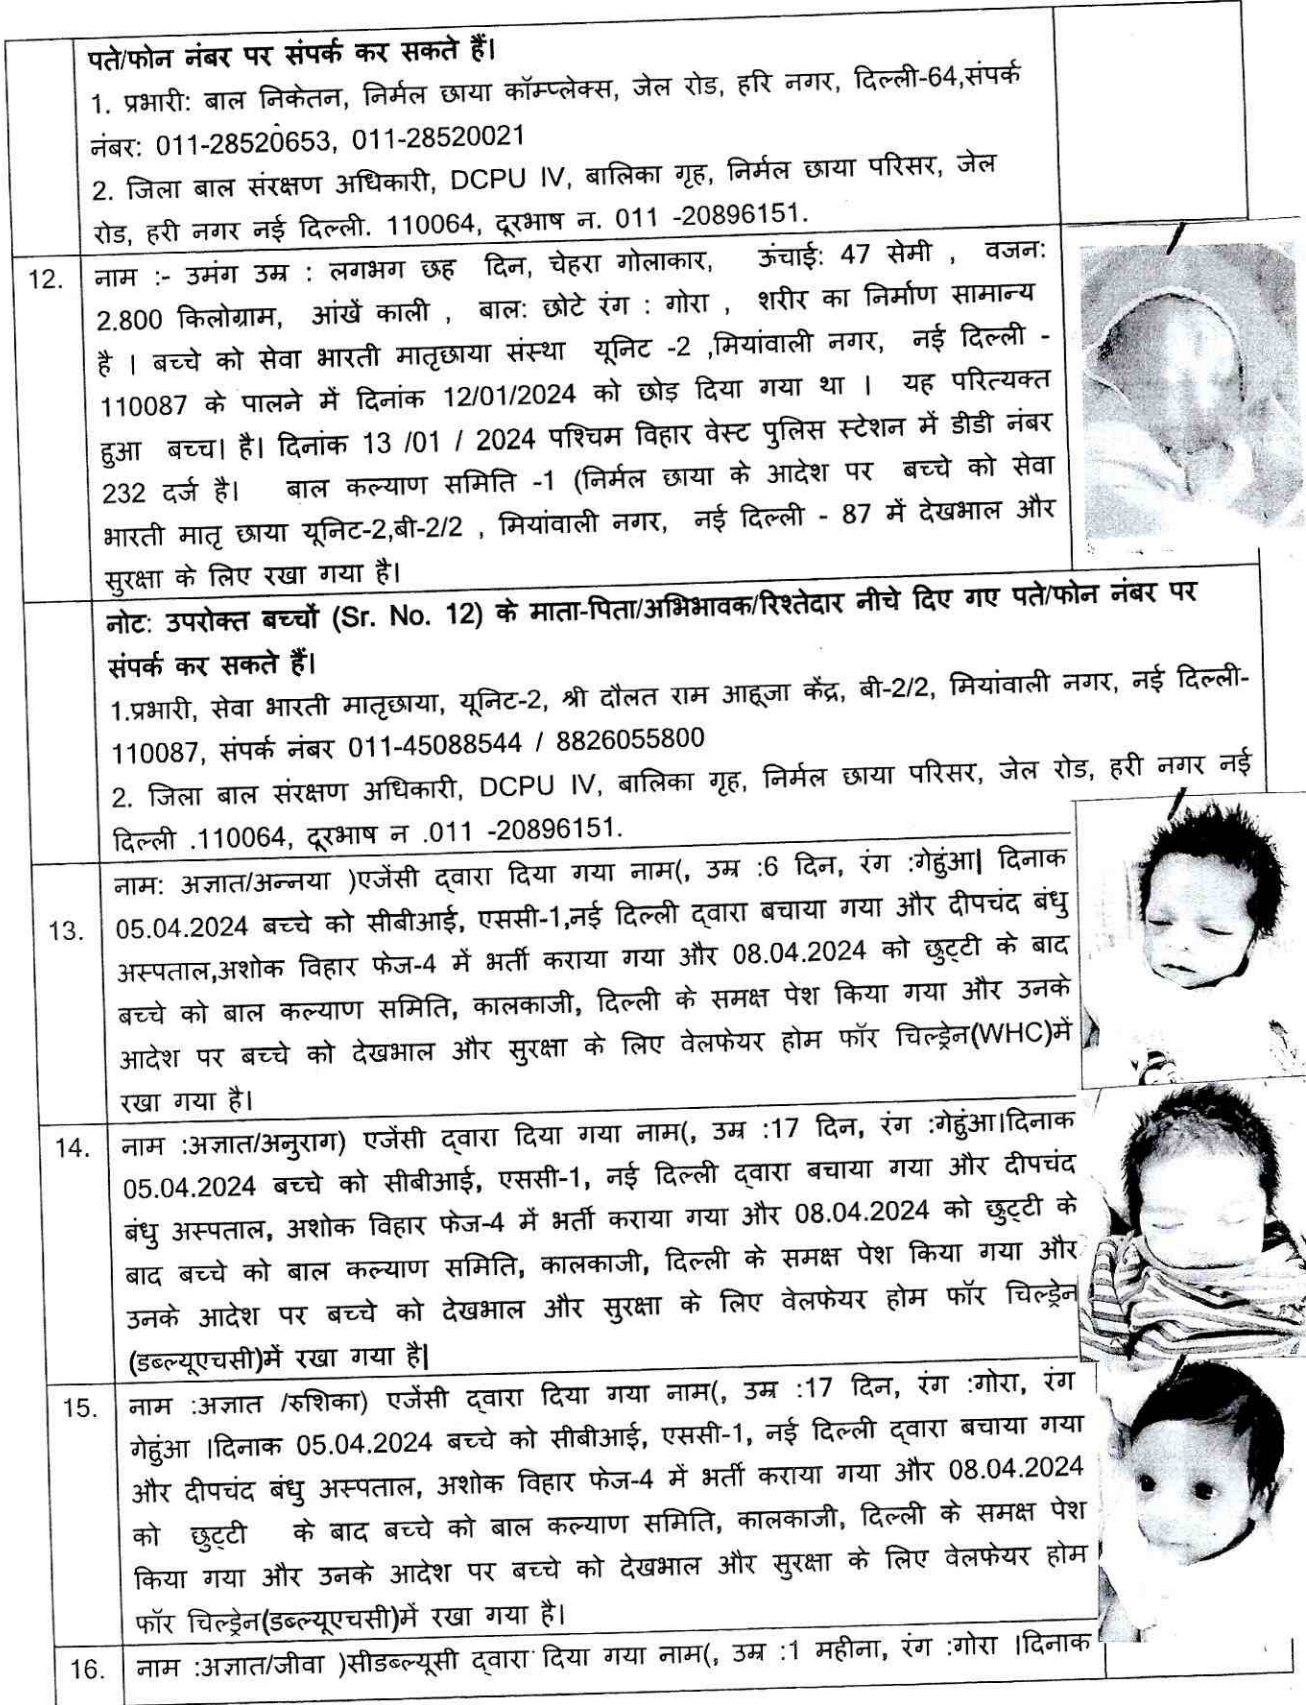 पते/फोन नंबर पर संपर्क कर सकते हैं।
1. प्रभारी: बाल निकेतन, निर्मल छाया कॉम्प्लेक्स, जेल रोड, हरि नगर, दिल्ली-64,संपर्क
नंबर: 011-28520653, 011-28520021
2. जिला बाल संरक्षण अधिकारी, DCPU IV, बालिका गृह, निर्मल छाया परिसर, जेल
रोड, हरी नगर नई दिल्ली. 110064, दूरभाष न. 011 -20896151.
12. नाम :- उमंग उम्र : लगभग छह दिन, चेहरा गोलाकार, ऊंचाई: 47 सेमी , वजन:
2.800 किलोग्राम, आंखें काली , बाल: छोटे रंग : गोरा , शरीर का निर्माण सामान्य
है । बच्चे को सेवा भारती मातृछाया संस्था यूनिट -2 ,मियांवाली नगर, नई दिल्ली -
110087 के पालने में दिनांक 12/01/2024 को छोड़ दिया गया था । यह परित्यक्त
हुआ बच्च। है। दिनांक 13 /01 / 2024 पश्चिम विहार वेस्ट पुलिस स्टेशन में डीडी नंबर
232 दर्ज है। बाल कल्याण समिति -1 (निर्मल छाया के आदेश पर बच्चे को सेवा
भारती मातृ छाया यूनिट-2,बी-2/2 , मियांवाली नगर, नई दिल्ली - 87 में देखभाल और
सुरक्षा के लिए रखा गया है।
नोट: उपरोक्त बच्चों (Sr. No. 12) के माता-पिता/अभिभावक/रिश्तेदार नीचे दिए गए पते/फोन नंबर पर
संपर्क कर सकते हैं।
1.प्रभारी, सेवा भारती मातृछाया, यूनिट-2, श्री दौलत राम आहूजा केंद्र, बी-2/2, मियांवाली नगर, नई दिल्ली-
110087, संपर्क नंबर 011-45088544 / 8826055800
2. जिला बाल संरक्षण अधिकारी, DCPU IV, बालिका गृह, निर्मल छाया परिसर, जेल रोड, हरी नगर नई
दिल्ली .110064, दूरभाष न .011 -20896151.
13. नाम: अज्ञात/अन्नया )एजेंसी द्वारा दिया गया नाम(, उम्र :6 दिन, रंग :गेहुंआ| दिनाक
05.04.2024 बच्चे को सीबीआई, एससी-1,नई दिल्ली द्वारा बचाया गया और दीपचंद बंधु
अस्पताल,अशोक विहार फेज-4 में भर्ती कराया गया और 08.04.2024 को छुट्टी के बाद
बच्चे को बाल कल्याण समिति, कालकाजी, दिल्ली के समक्ष पेश किया गया और उनके
आदेश पर बच्चे को देखभाल और सुरक्षा के लिए वेलफेयर होम फॉर चिल्ड्रेन(WHC)में
रखा गया है।
14. नाम :अज्ञात/अनुराग) एजेंसी द्वारा दिया गया नाम(, उम्र :17 दिन, रंग :गेहुंआ।दिनाक
05.04.2024 बच्चे को सीबीआई, एससी-1, नई दिल्ली द्वारा बचाया गया और दीपचंद
बंधु अस्पताल, अशोक विहार फेज-4 में भर्ती कराया गया और 08.04.2024 को छुट्टी के
बाद बच्चे को बाल कल्याण समिति, कालकाजी, दिल्ली के समक्ष पेश किया गया और
उनके आदेश पर बच्चे को देखभाल और सुरक्षा के लिए वेलफेयर होम फॉर चिल्ड्रेन
(डब्ल्यूएचसी)में रखा गया है|
15. नाम :अज्ञात /रुशिका) एजेंसी द्वारा दिया गया नाम(, उम्र :17 दिन, रंग :गोरा, रंग
गेहुंआ ।दिनाक 05.04.2024 बच्चे को सीबीआई, एससी-1, नई दिल्ली द्वारा बचाया गया
और दीपचंद बंधु अस्पताल, अशोक विहार फेज-4 में भर्ती कराया गया और 08.04.2024
को छुट्टी के बाद बच्चे को बाल कल्याण समिति, कालकाजी, दिल्ली के समक्ष पेश
किया गया और उनके आदेश पर बच्चे को देखभाल और सुरक्षा के लिए वेलफेयर होम
फॉर चिल्ड्रेन(डब्ल्यूएचसी)में रखा गया है।
16. नाम :अज्ञात/जीवा )सीडब्ल्यूसी द्वारा दिया गया नाम(, उम्र :1 महीना, रंग :गोरा ।दिनाक